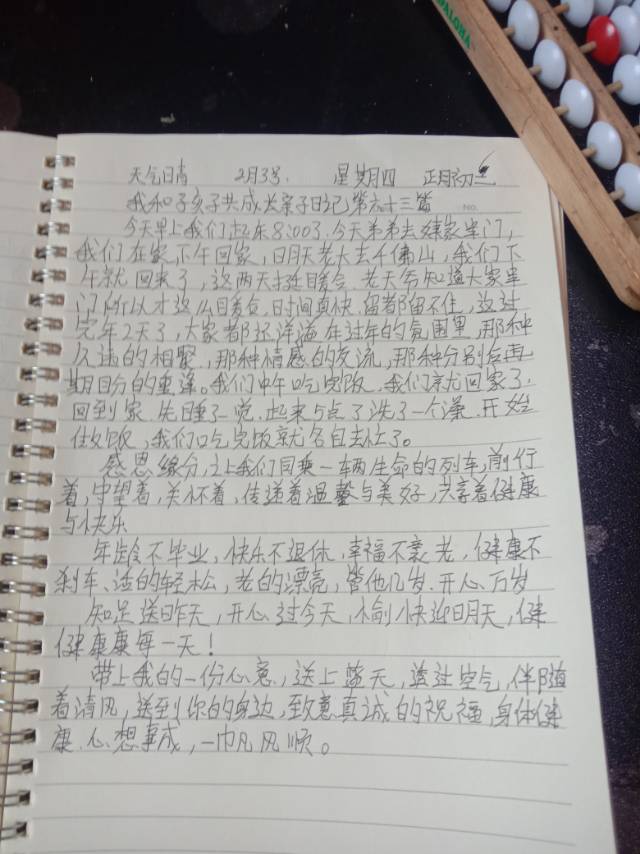 PALOMA
天气日青 2月3号. 星期四 正月初三
我和孩子共成长亲子日记第六十三篇
No.
今天早上我们起床8:00了.今天弟弟去嫁家串门,
我们在家下午回家,明天老大去千佛山,我们下
午就回来了,这两天挺暖合.老天爷知道大家串
门所以才这么暖合.时间真快.留都留不住,这过
完年2天了,大家都还洋溢在过年的氛围里,那种
久违的相聚,那种情感的交流,那种分别后再
期目分的重逢。我们中午吃完饭.我们就回家了.
回到家.先睡了一觉.起来5点了洗了一个澡.开始
做饭,我们吃完饭就各自去忙了。
感恩缘分,让我们同乘一车两生命的列车,前行
着,守望着,关怀着,传递着温馨与美好,共享着健康
与快乐
年龄不毕业,快乐不退休.幸福不衰老,健康不
刹车、活的轻松,老的漂亮,管他几岁.开心万岁
知足送昨天,开心过今天,愉快迎明天,健
健康康每一天!
带上我的一份心意,送上蓝天,透过空气,伴随
着清风,送到你的身边,致意真诚的祝福,身体健
康.心想事成,一巾凡风顺。